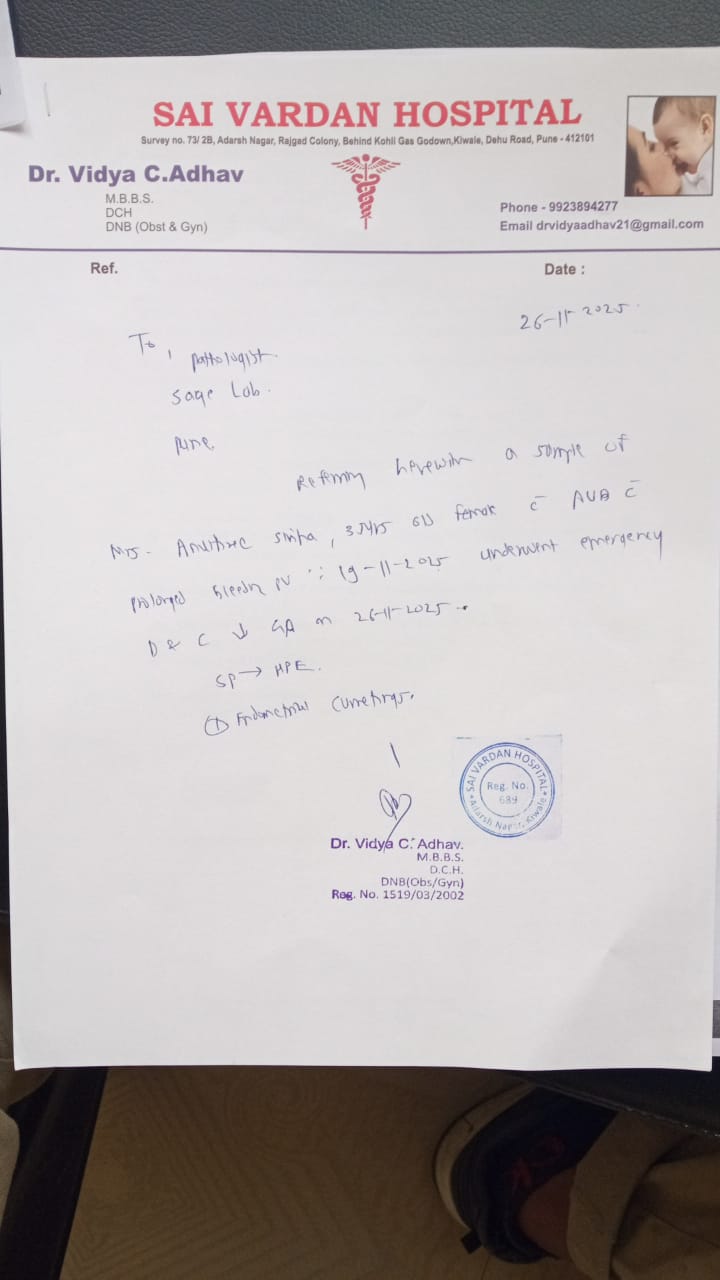 SAI VARDAN HOSPITAL
Survey no. 73/ 2B, Adarsh Nagar, Rajgad Colony, Behind Kohli Gas Godown,Kiwale, Dehu Road, Pune - 412101
Dr. Vidya C.Adhav
M.B.B.S.
DCH
DNB (Obst & Gyn)
Phone - 9923894277
Email drvidyaadhav21@gmail.com
Ref.
Date :
26-11-2025.
To,
pathologist.
Sage Lab.
Pune.
Referring herewith a sample of
Mrs. sinha, old female c̄ AUB c̄
prolonged bleeding PV ∵ 19-11-2025 underwent emergency
D & C ↓ GA on 26-11-2025.
SP → HPE.
① Endometrial Currettings.
SAI VARDAN HOSPITAL
Reg. No.
689
Adarsh Nagar, Kiwale
Dr. Vidya C. Adhav.
M.B.B.S.
D.C.H.
DNB(Obs/Gyn)
Reg. No. 1519/03/2002